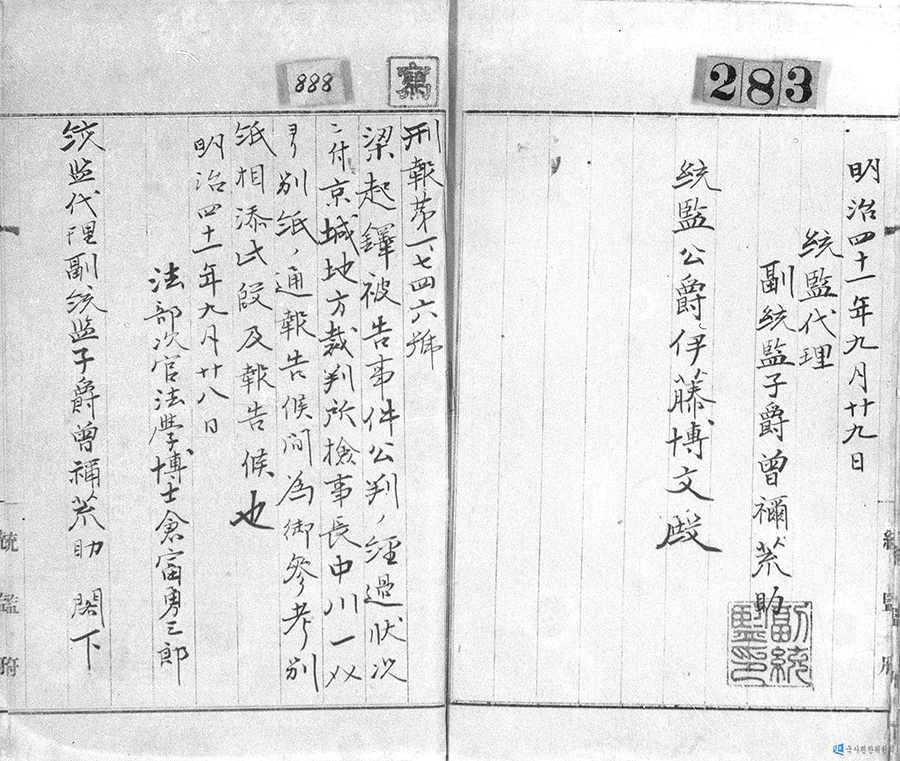 283
明治四十一年九月廿九日
統監代理
副統監子爵曾禰荒助
副統監印
統監公爵伊藤博文殿
寫
888
刑報第一七四六號
梁起鐸被告事件公判ノ経過狀况
ニ付京城地方裁判所檢事長中川一介
ヨリ別紙ノ通報告候間為御参考別
紙相添此段及報告候也
明治四十一年九月廿八日
法部次官法學博士倉富勇三郎
統監代理副統監子爵曾禰荒助閣下
統監府
統監府
국사편찬위원회